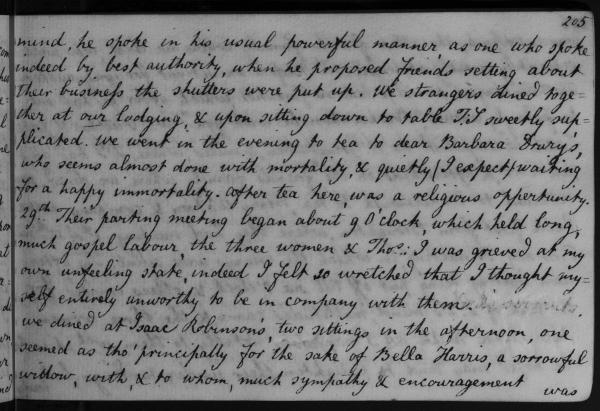 205
mind, he spoke in his usual powerful manner, as one who spoke
indeed by best authority, when he proposed friends setting about
their business the shutters were put up. We strangers dined toge-
ther at our lodging, & upon sitting down to table T:S sweetly sup-
plicated. we went in the evening to tea to dear Barbara Drury's,
who seems almost done with mortality & quietly (I expect) waiting
for a happy immortality. after tea here, was a religious oppertunity.
29th Their parting meeting began about 9 O'clock, which held long,
much gospel labour, the three women & Thos: I was grieved at my
own unfeeling state, indeed I felt so wretched that I thought my-
self entirely unworthy to be in company with them.
we dined at Isaac Robinson's, two sittings in the afternoon, one
seemed as tho' principally for the sake of Bella Harris, a sorrowful
widow, with, & to whom, much sympathy & encouragement
was